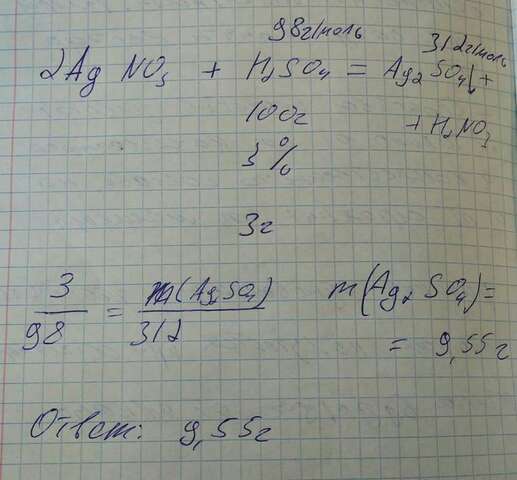 98г/моль 312г/моль
2AgNO3 + H2SO4 = Ag2SO4↓+
100г + H2NO3
3%
3г
3/98 = m(Ag2SO4)/312 m(Ag2SO4)=
= 9,55г
Ответ: 9,55г